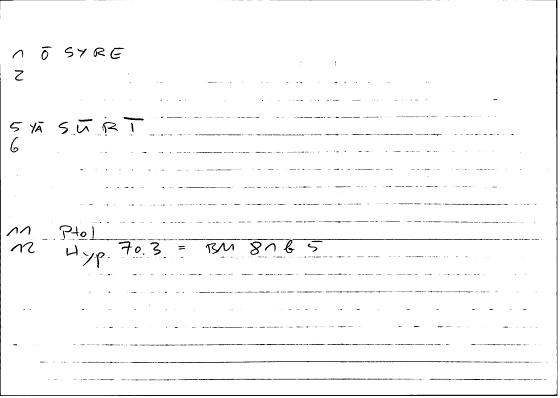 1 Ō SYRE
2
5 YĀ S Ū R Ī
6
11 Ptol
12 Hyp. 70.3 = BM 81 b 5